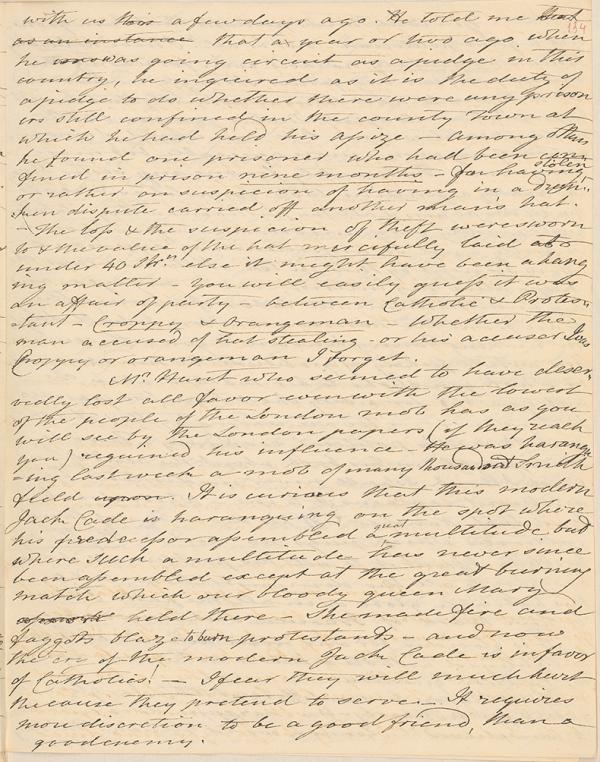 with us this a few days ago. He told me that 134
as an instance that a year or two ago when
he was going circuit as a judge in this
country, he inquired as it is the duty of
a judge to do whether there were any prison
ers still confined in the county town at
which he had held his assize – among others
he found one prisoner who had been con
fined in prison nine months – for having stolen
or rather on suspicion of having in a drun-
-ken dispute carried off another man's hat.
– The loss & the suspicion of theft were sworn
to & the value of the hat mercifully laid at
under 40 Shns else it might have been a hang
ing matter – you will easily guess it was
an affair of party – between Catholic & Protes
-tant – Croppy & Orangeman – Whether the
man accused of hat stealing – or his accuser was
Croppy or orangeman I forget.
Mr. Hunt who seemed to have deser-
vedly lost all favor even with the lowest
of the people of the London mob has as you
will see by the London papers (if they reach
you) regained his influence – He was harangu
-ing last week a mob of many thousands at Smith
field upon. It is curious that this modern
Jack Cade is haranguing on the spot where
his predecessor assembled a great multitude but
where such a multitude has never since
been assembled except at the great burning
match which our bloody queen Mary
held there – She made fire and
faggots blaze to burn protestants – and now
the cry of the modern Jack Cade is in favor
of Catholics! – I fear they will much hurt
the cause they pretend to serve – It requires
more discretion to be a good friend, than a
good enemy.